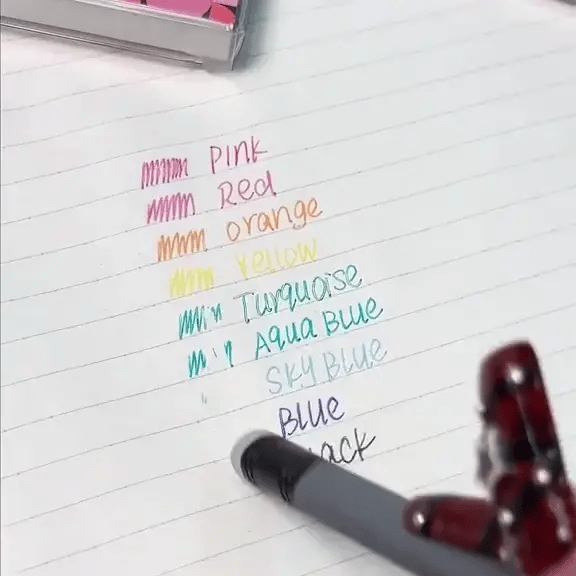 Pink
Red
orange
Yellow
Turquoise
Aqua Blue
Sky Blue
Blue